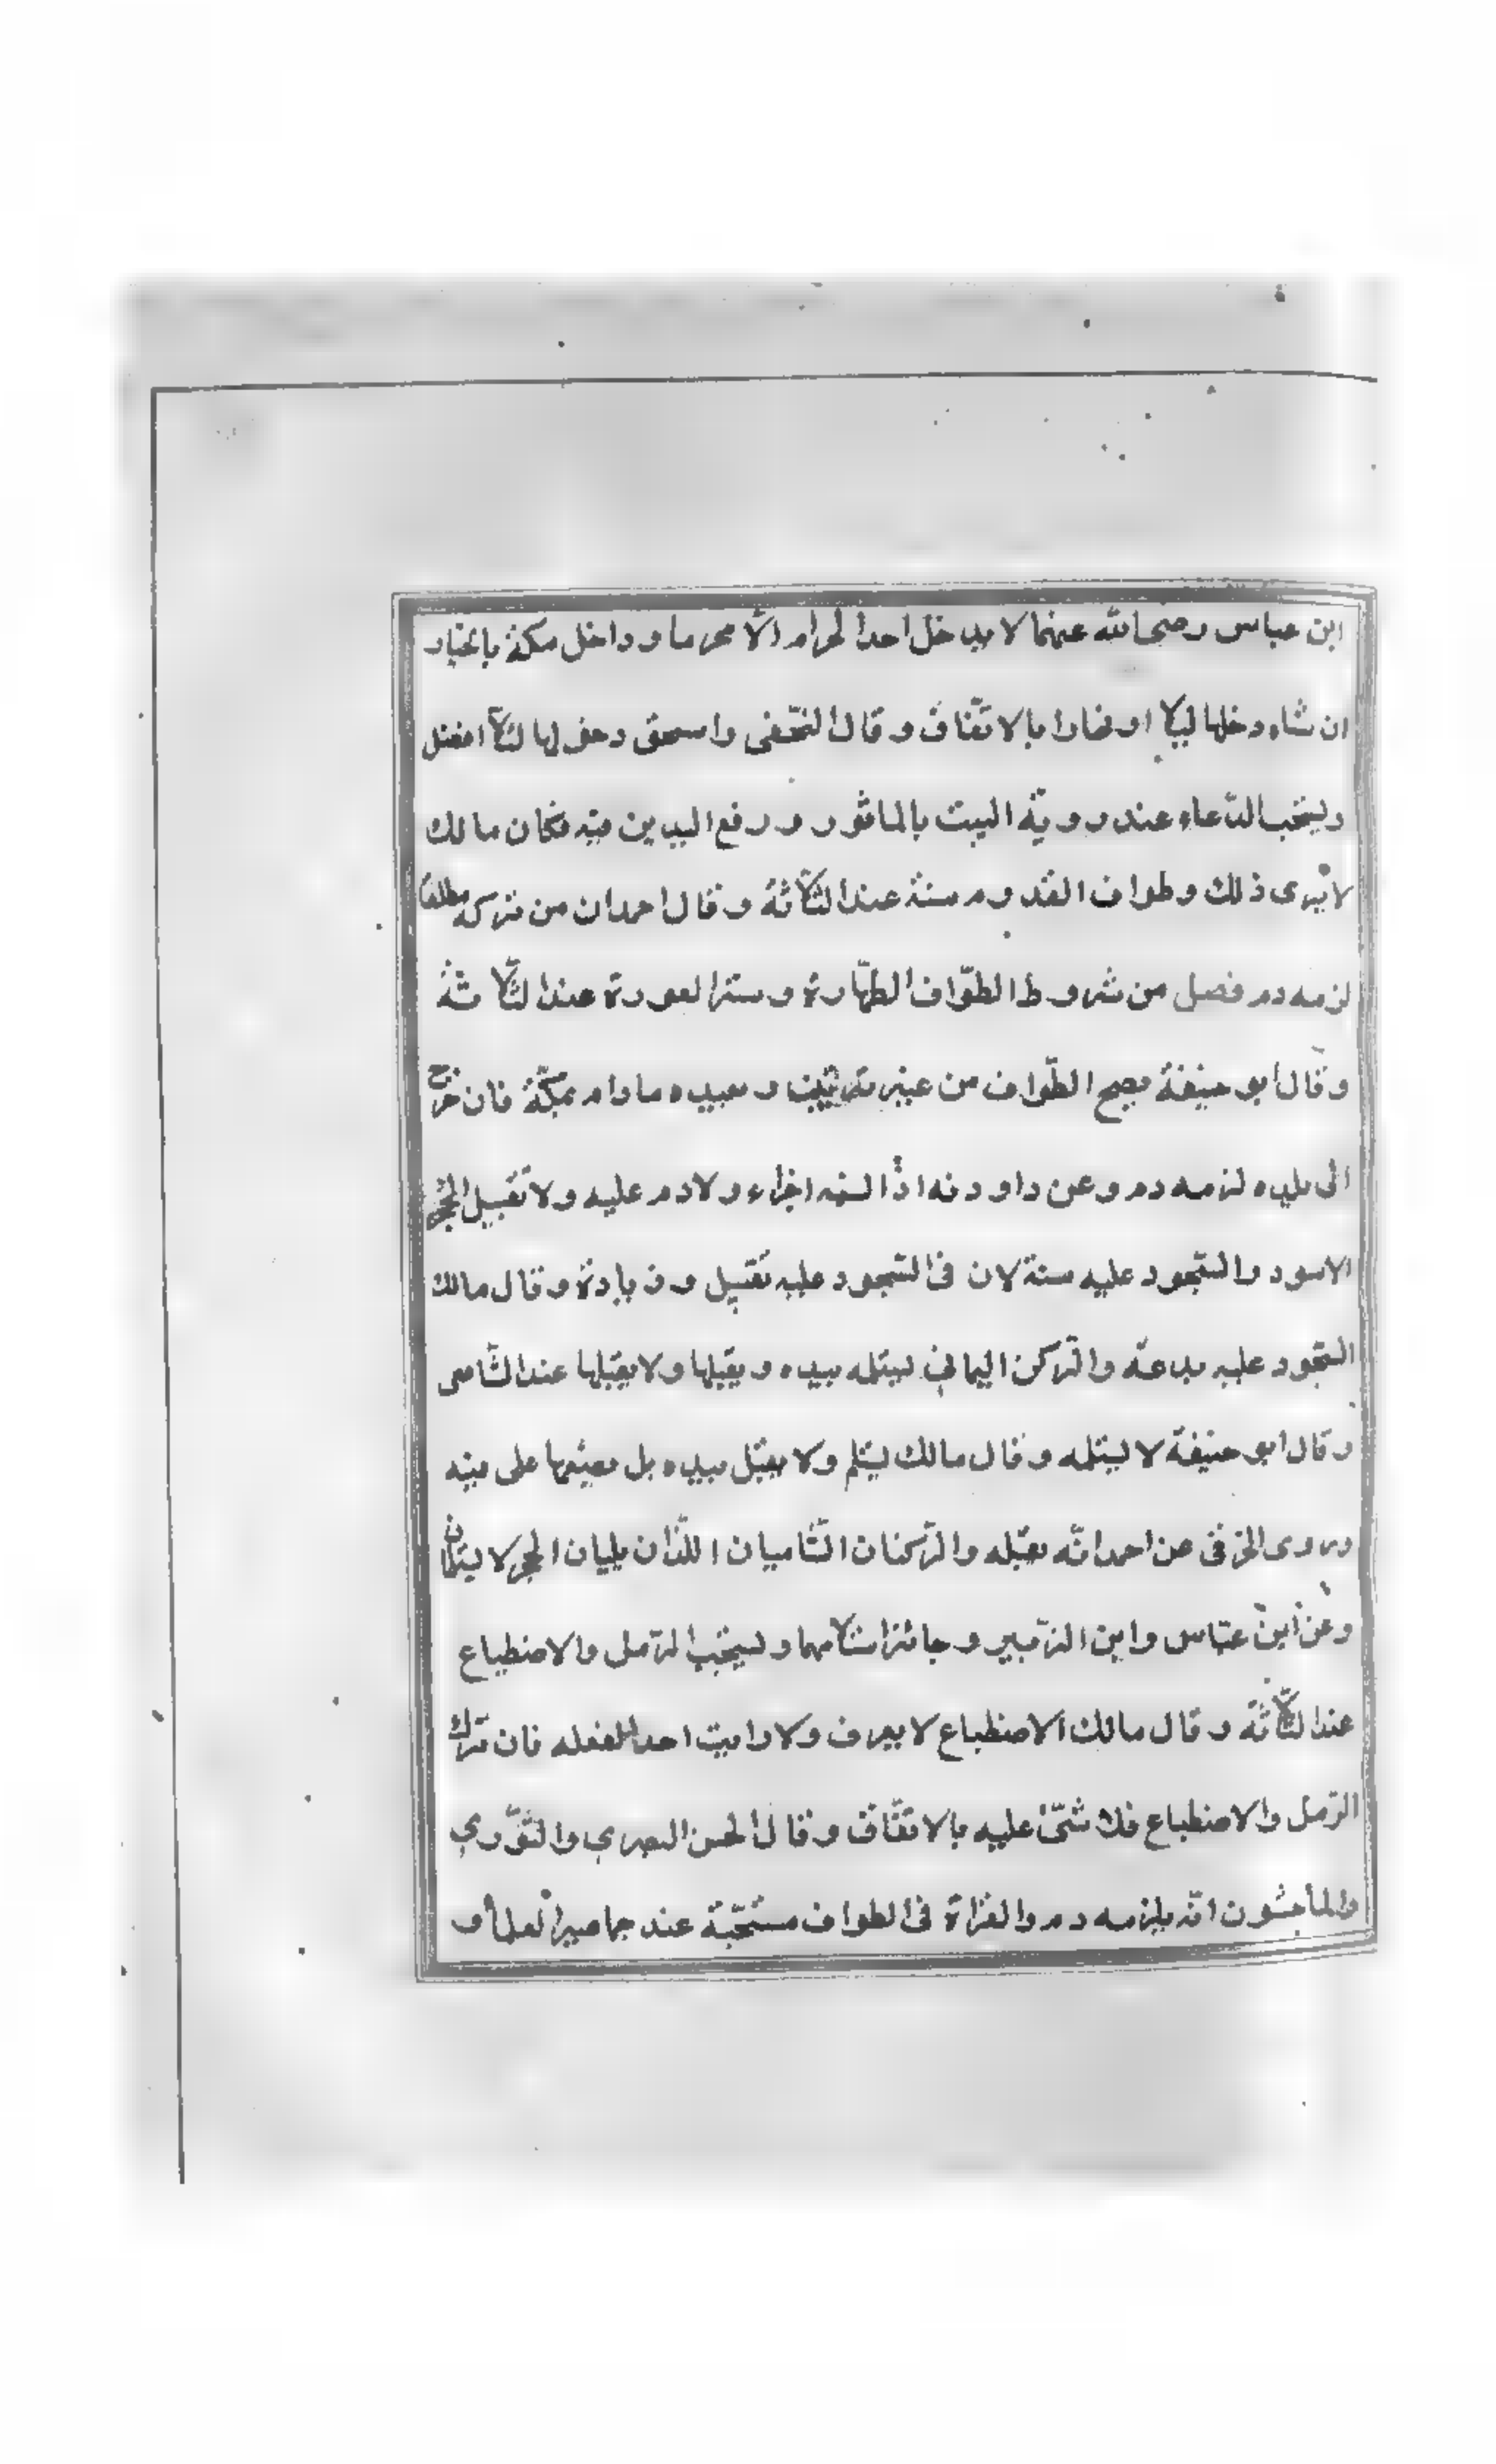 ابن عباس رضى الله عنهما لا يدخل احد الحرام الّا محرما و داخل مكة بالخيار
ان شاء دخلها ليلا او نهارا بالاتّفاق و قال النّخعى واسحق دخولها ليلًا افضل
ويستحب الدّعاء عند رويّة البيت بالماثور و رفع اليدين فيه فكان مالك
لا يرى ذلك و طواف القدوم سنة عند الثلاثة و قال احمد ان من تركه مطلقا
لزمه دم فصل من شروط الطوّاف الطهّارة و ستر العورة عند الثّلاثة
و قال ابو حنيفة يصح الطّواف من غير ترتيب و يعيده ما دام بمكّة فان خرج
الى بلده لزمه دم وعن داود انه اذا نسيه اجزاء ولا دم عليه ولا تقبيل الحجر
الاسود والسّجود عليه سنة لان فى السّجود عليه تقبيل و زيادة و قال مالك
السّجود عليه بدعة والرّكن اليمانى يستلمه بيده و يقبلها ولا يقبلها عند الشّافعى
و قال ابو حنيفة لا يستلمه و قال مالك يستلم ولا يقبل بيده بل يضعها على فيه
وروى الخرقى عن احمد انّه يقبّله والرّكنان الشّاميان اللّذان يليان الحجر لا يستلمان
وعن ابن عبّاس وابن الزّبير و جائز استلامهما و يستحب الرّمل والاضطباع
عند الثّلاثة و قال مالك الاضطباع لا يعرف ولا رايت احدا يفعله فان ترك
الرّمل والاضطباع فلا شىّ عليه بالاتفّاق و قال الحسن البصري والثّوري
والماجشون انّه يلزمه دم والقراة فى الطواف مستحّبة عند جماهير العلماء و